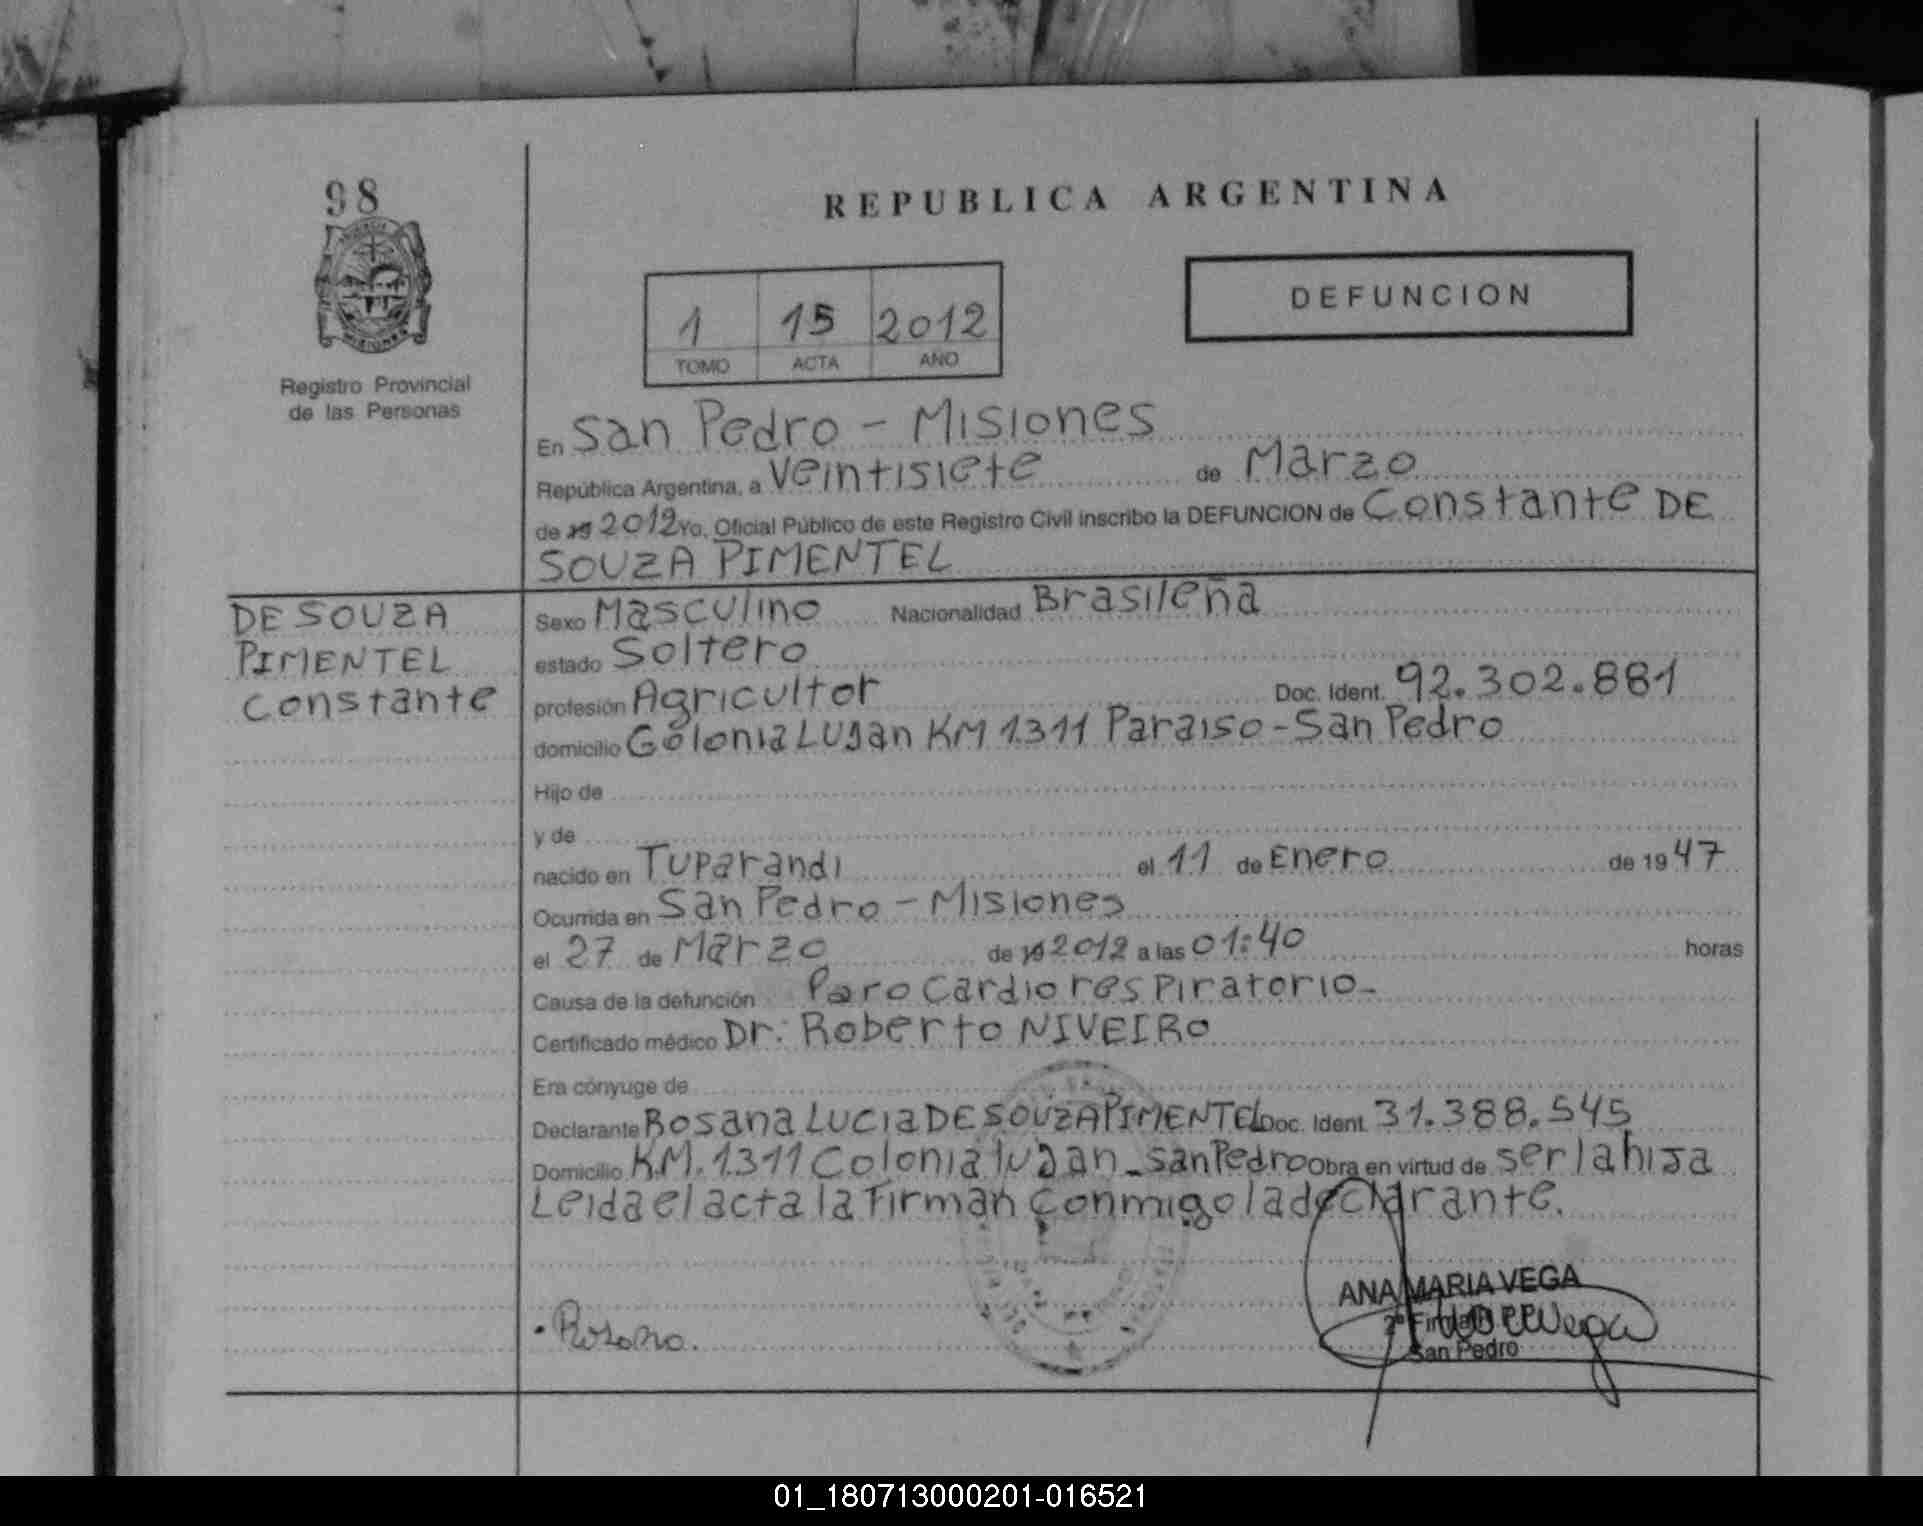 98
REPUBLICA ARGENTINA
MISIONES
Registro Provincial
de las Personas
1 15 2012
TOMO ACTA AÑO
DEFUNCION
En San Pedro - Misiones
República Argentina, a Veintisiete de Marzo
de 19 2012 Yo, Oficial Público de este Registro Civil inscribo la DEFUNCION de Constante DE
SOUZA PIMENTEL
DE SOUZA
PIMENTEL
Constante
Sexo Masculino Nacionalidad Brasileña
estado Soltero
profesión Agricultor Doc. Ident. 92.302.881
domicilio Colonia LUJan KM 1311 Paraiso - San Pedro
Hijo de
y de
nacido en Tuparandi el 11 de Enero de 1947
Ocurrida en San Pedro - Misiones
el 27 de Marzo de 19 2012 a las 01:40 horas
Causa de la defunción Paro Cardiorespiratorio -
Certificado médico Dr: Roberto NIVEIRO
Era cónyuge de
Declarante Rosana LUCIa DE SOUZA PIMENTEL Doc. Ident. 31.388.545
Domicilio KM. 1311 Colonia lujan - San Pedro Obra en virtud de ser la hija
Leida el acta la Firman Conmigo la declarante.
ANA MARIA VEGA
San Pedro
. Rosana.
01_180713000201-016521